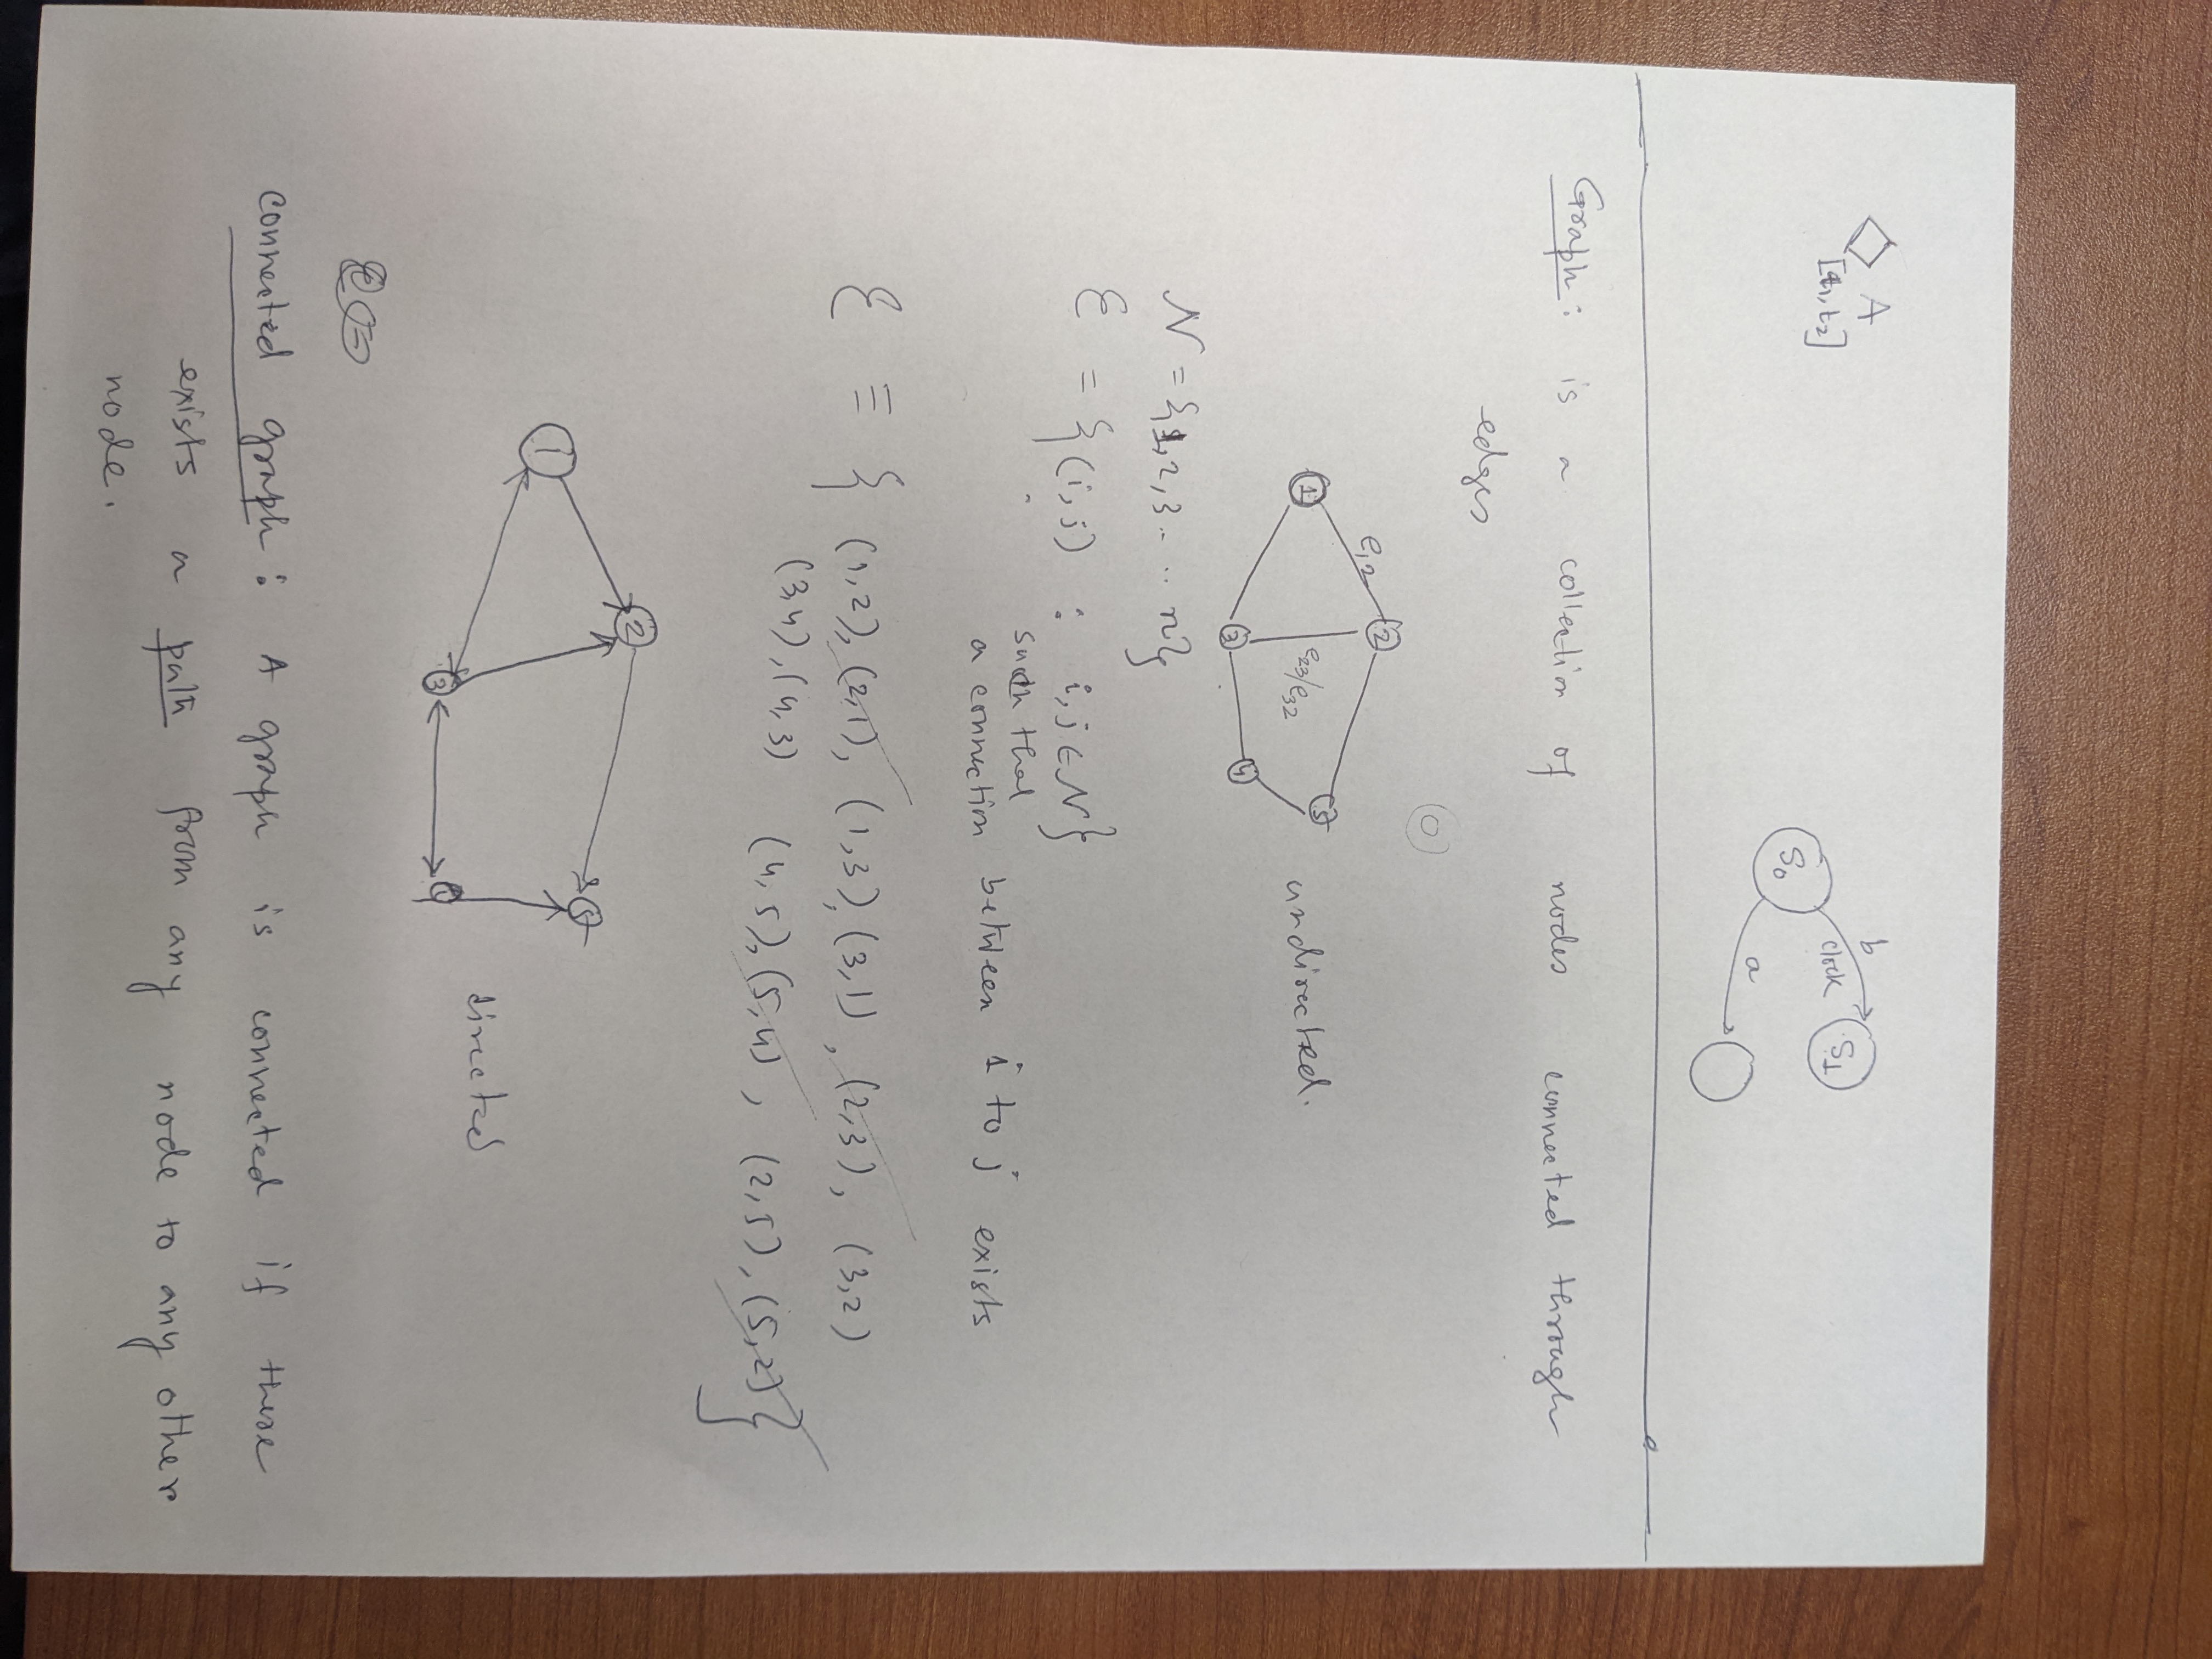 ◇ A
[t1, t2]
S0
b
clock
S1
a
Graph: is a collection of nodes connected through
edges
1
e12
2
3
e23/e32
4
5
undirected.
N = {1, 2, 3 ..... n}
E = { (i, j) : i, j ∈ N }
such that
a connection between i to j exists
E ≡ { (1,2), (2,1), (1,3), (3,1), (2,3), (3,2)
(3,4), (4,3) (4,5), (5,4), (2,5), (5,2) }
1
2
3
directed
connected graph: A graph is connected if there
exists a path from any node to any other
node.